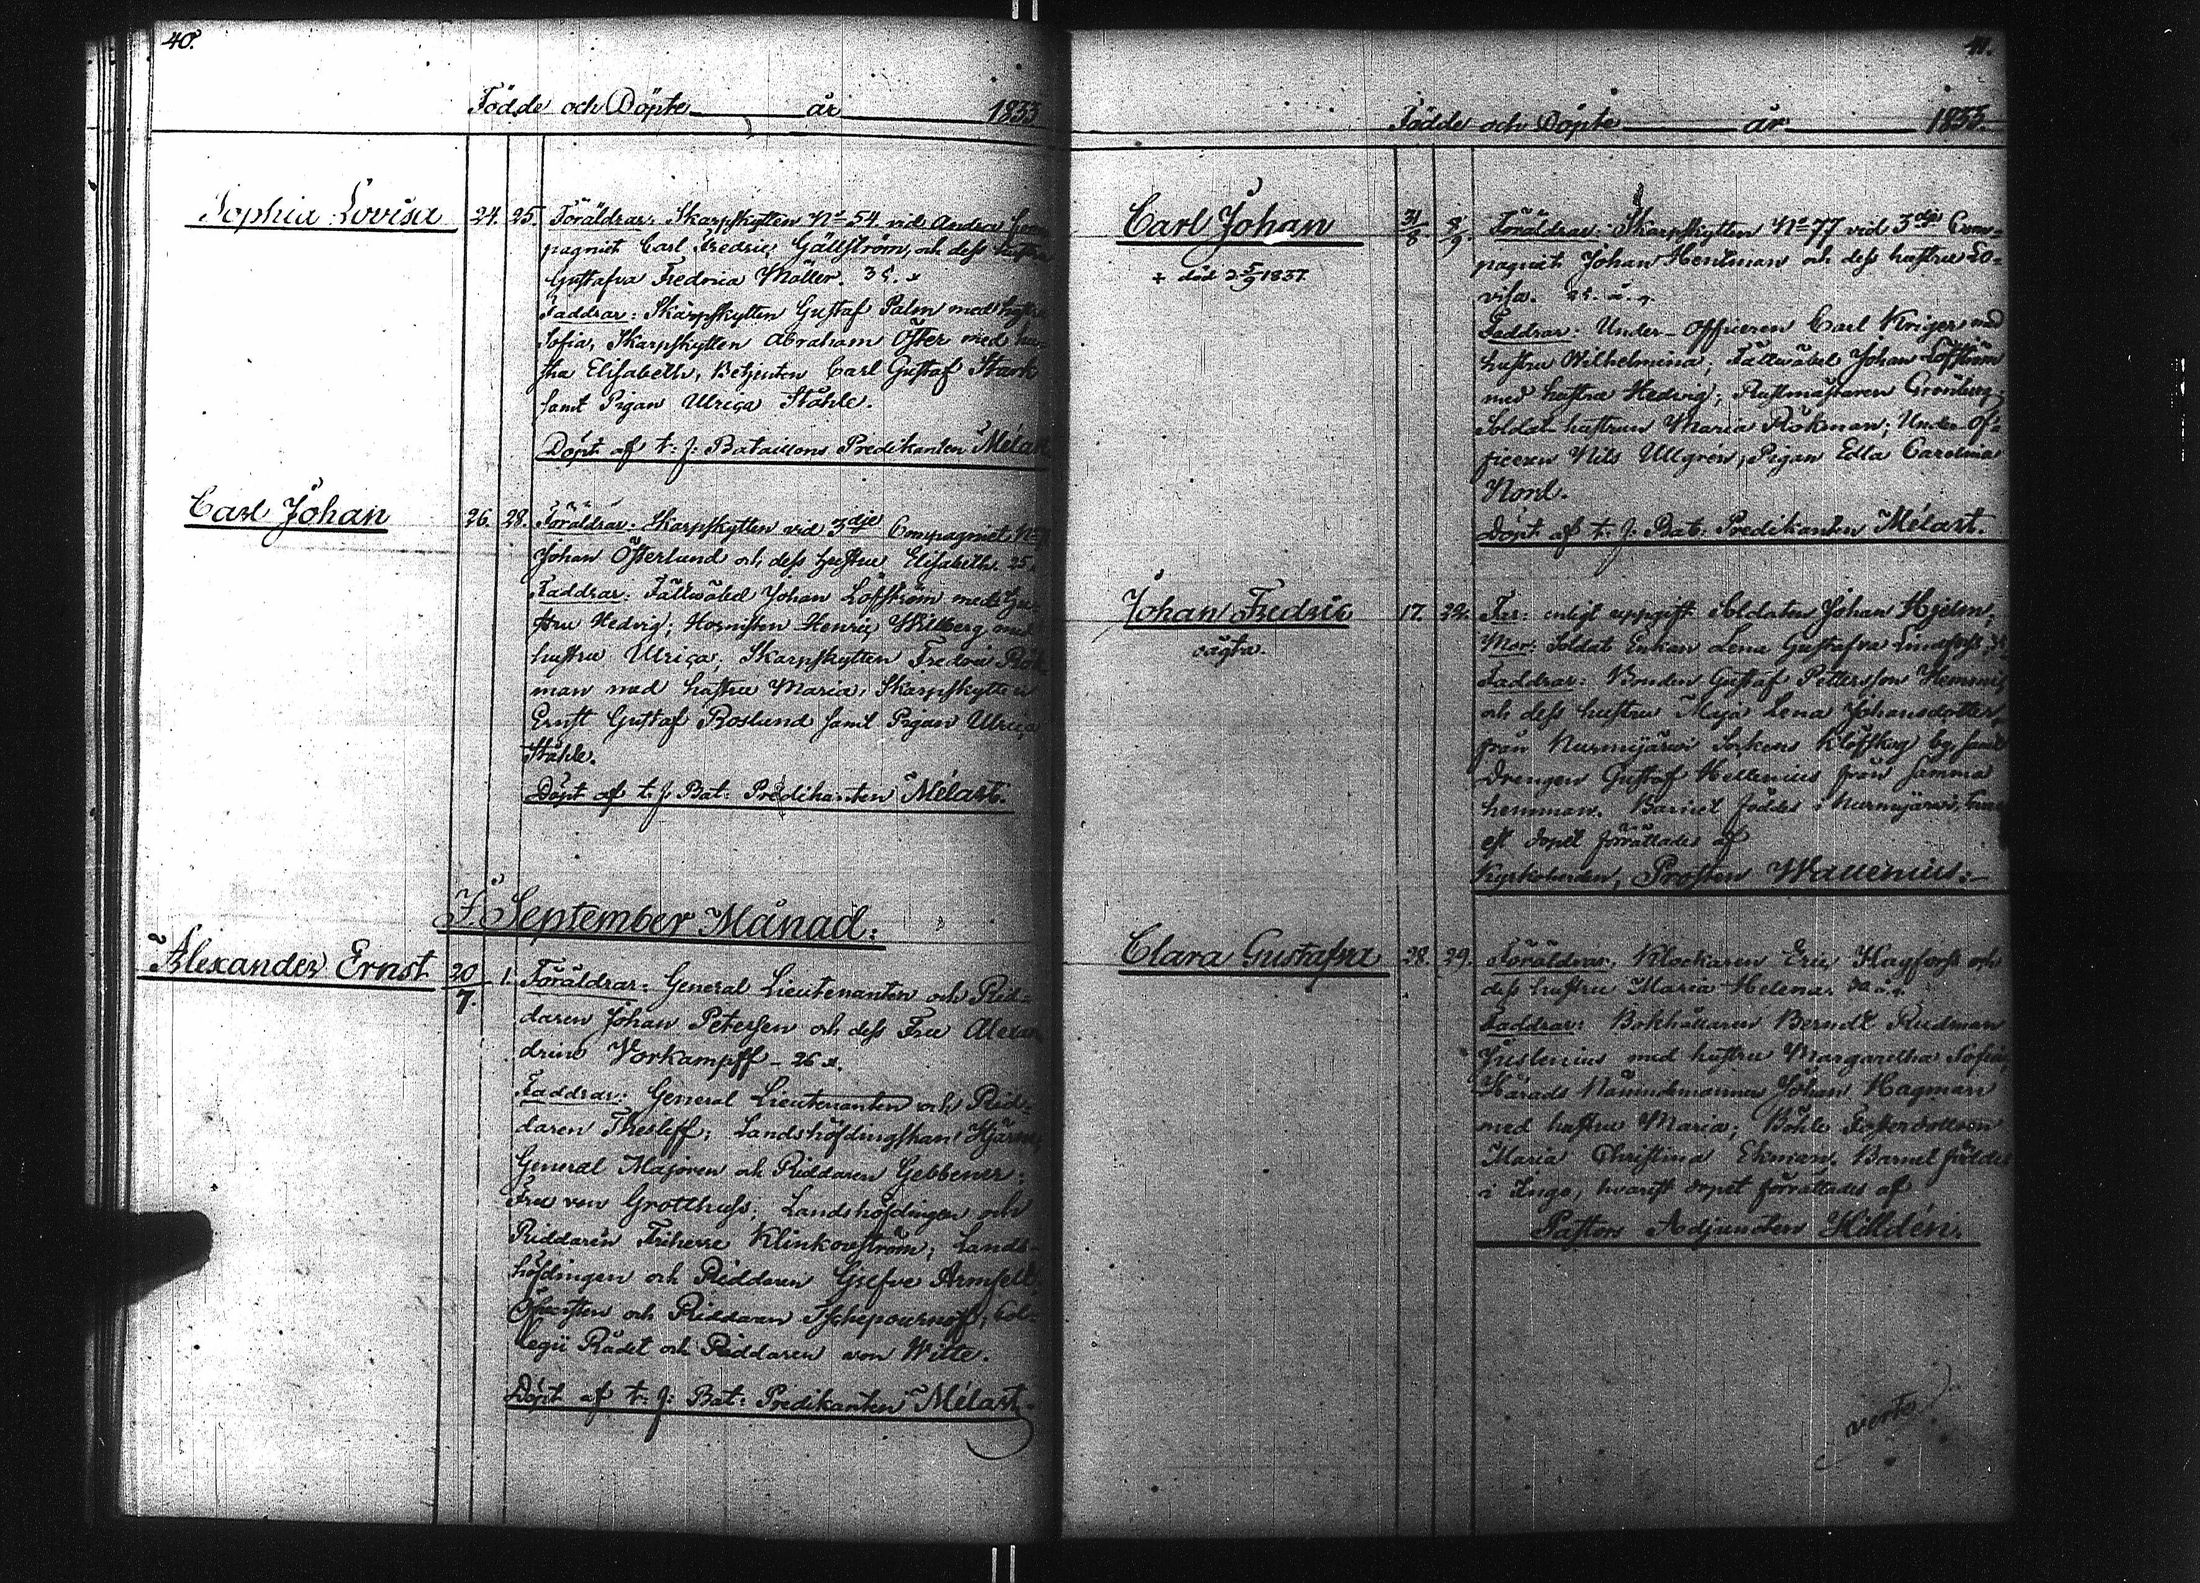 40.
Födde och Döpte år 1833
Sophia Lovisa 24. 25. Föräldrar: Skarpskytten No 54. vid Andra Com-
pagniet Carl Fredric Gällström, och dess hustru
Gustafva Fredrica Möller. 35.
Faddrar: Skarpskytten Gustaf Palm med hustru
Sofia, Skarpskytten Abraham Öster med hu-
stru Elisabeth, Betjenten Carl Gustaf Stark
samt Pigan Ulrica Ståhle.
Döpt af t: j: Bataillons Predikanten Mélart
Carl Johan 26. 28. Föräldrar: Skarpskytten vid 3dje Compagniet
Johan Österlund och dess hustru Elisabeth. 25.
Faddrar: Fältwäbel Johan Löfström med hu-
stru Hedvig; Hornisten Henric Willberg med
hustru Ulrica; Skarpskytten Fredric Rök-
man med hustru Maria, Skarpskytten
Ernst Gustaf Roslund samt Pigan Ulrica
Ståhle.
Döpt af t. j. Bat: Predikanten Mélart.
I September Månad:
Alexander Ernst 20/7. 1. Föräldrar: General Lieutenanten och Rid-
daren Johan Petersen och dess Fru Alexan
drine Vorkampff - 26
Faddrar: General Lieutenanten och Rid-
daren Thesleff; Landshöfdingskan Hjärne,
General Majoren och Riddaren Gebbener;
Fru von Grotthuss; Landshöfdingen och
Riddaren Friherre Klinkowström; Lands-
höfdingen och Riddaren Grefve Armfelt
Öfversten och Riddaren Tschepournoff; Col-
legii Rådet och Riddaren von Witte.
Döpt af t: j: Bat: Predikanten Mélart.
41.
Födde och Döpte år 1833.
Carl Johan 31/8 8/9. Föräldrar: Skarpskytten No 77 vid 3dje Com-
+ död 2 5/9 1837.
pagniet Johan Hentman och dess hustru Lo-
visa. 25.
Faddrar: Under-officeren Carl Kriger med
hustru Wilhelmina; Fältwäbel Johan Löfström
med hustru Hedvig; Rustmästaren Grönberg;
Soldats hustrun Maria Rökman; Under-of-
ficeren Nils Ullgrén; Pigan Edla Carolina
Nord.
Döpt af t. j. Bat. Predikanten Mélart.
Johan Fredric 17. 22. Far: enligt uppgift Soldaten Johan Hjelm;
oägta.
Mor: Soldats Enkan Lena Gustafva Lindfors
Faddrar: Bonden Gustaf Pettersson
och dess hustru Maja Lena Johansdotter
från Nurmijärvi Sockens Klöfskog by, samt
Drengen Gustaf Hellenius från samma
hemman. Barnet föddes i Nurmijärvi,
est dopet förrättades af
Kyrkoherden, Prosten Wallenius.-
Clara Gustafva 28. 29. Föräldrar, Klockaren Eric Hagfors och
dess hustru Maria Helena.
Faddrar: Bokhållaren Berndt Rudman
Juslenius med hustru Margaretha Sofia,
Härads Nämndemannen Johan Hagman
med hustru Maria; Böhle Fosterdottern
Maria Christina Ekman. Barnet föddes
i Ingo, hvarest dopet förrättades af
Pastors Adjuncten Hilldén.
verte